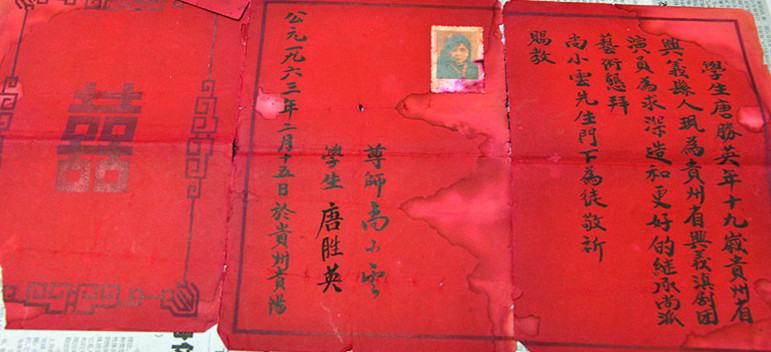 學生唐勝英年十九歲貴州省
興義縣人現為貴州省興義滇剧团
演員為求深造和更好的继承尚派
藝術懇拜
尚小雲先生門下為徒敬祈
賜教
尊師尚小雲
學生 唐胜英
公元一九六三年二月十五日於貴州貴陽
囍